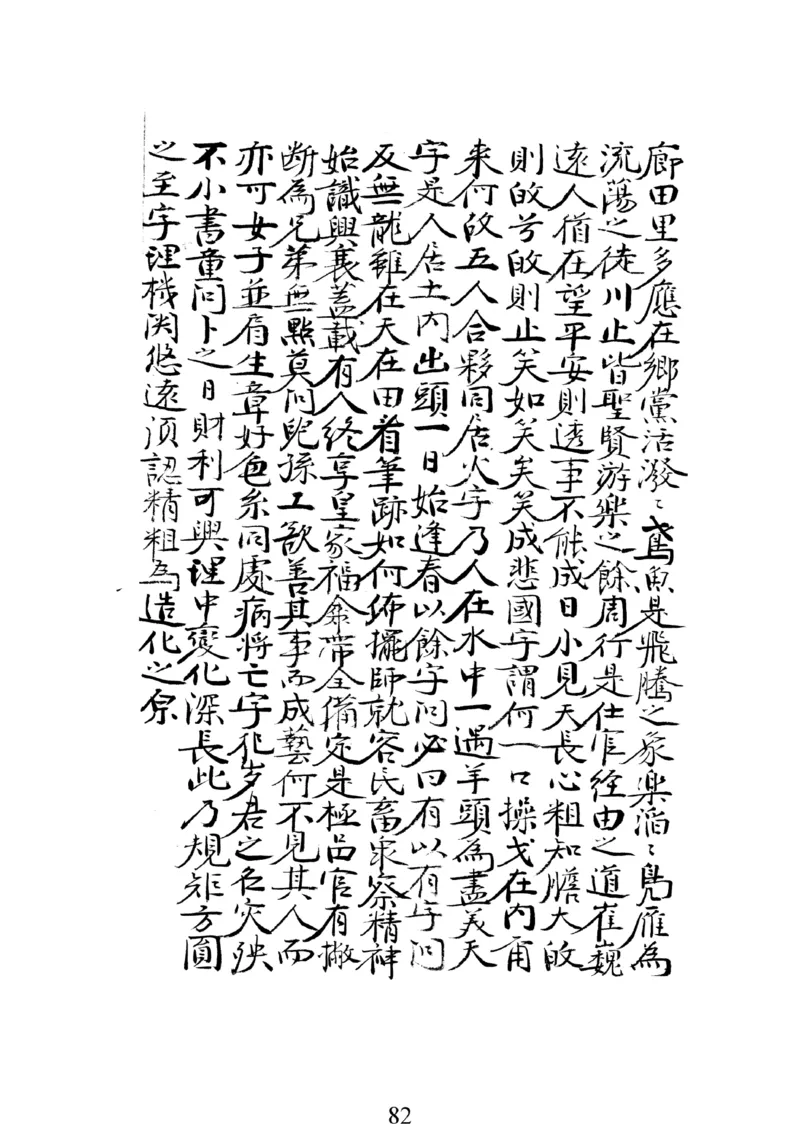 廊田里多應在鄉黨活潑〻鳶魚是飛騰之象樂滔〻鳧雁為
流蕩之徒川止皆聖賢游樂之餘周行是仕官経由之道崔巍
遠人猶在望平安則透事不能成日小見天長心粗知膽大㕁
則㕁兮㕁則止笑如笑矣笑成悲國字謂何一口操戈在内甭
来何㕁五人合夥同居火字乃人在水中一遇羊頭為盡美天
字是人居土内出頭一日始逢春以餘字问必曰有以有字问
反無龍雖在天在田着筆跡如何佈擺師就容民畜衆察精神
始識興衰蓋載有人終享皇家福余帶全備定是極品官有撇
断為兄弟無點莫问兒孫工欲善其事而成藝何不見其人而
亦可女子並肩生章好色糸同處病将亡字犯岁君之名灾殃
不小書童问卜之日財利可興理中變化深長此乃規矩方圓
之至字理機関悠遠须認精粗為造化之原
82